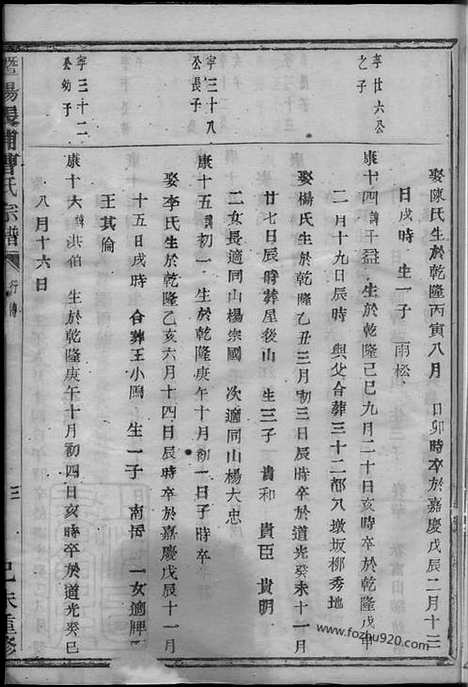 娶陳氏生於乾隆丙寅八月 日卯時卒於嘉慶戊辰二月十三
日戌時 生一子 雨松
孛廿六公
之子
康十四諱千益 生於乾隆己巳九月二十日亥時卒於乾隆戊申
二月十九日辰時 與父合葬三十二都八墩坂柳秀地
娶楊氏生於乾隆乙丑三月初三日辰時卒於道光癸未十一月
廿七日辰時葬屋後山 生三子 貴和 貴臣 貴明
二女長適同山楊宗國 次適同山楊大忠
孛三十八
公長子
康十五諱初一 生於乾隆庚午十月初一日子時卒
娶李氏生於乾隆乙亥六月十四日辰時卒於嘉慶戊辰十一月
十五日戌時 合葬王小陶 生一子 南 一女適牌
王其倫
孛三十二
公幼子
康十六諱洪伯 生於乾隆庚午十月初四日亥時卒於道光癸巳
八月十六日
暨陽 浦曹氏宗譜
行傳
三
己未重修
www.fozhu920.com